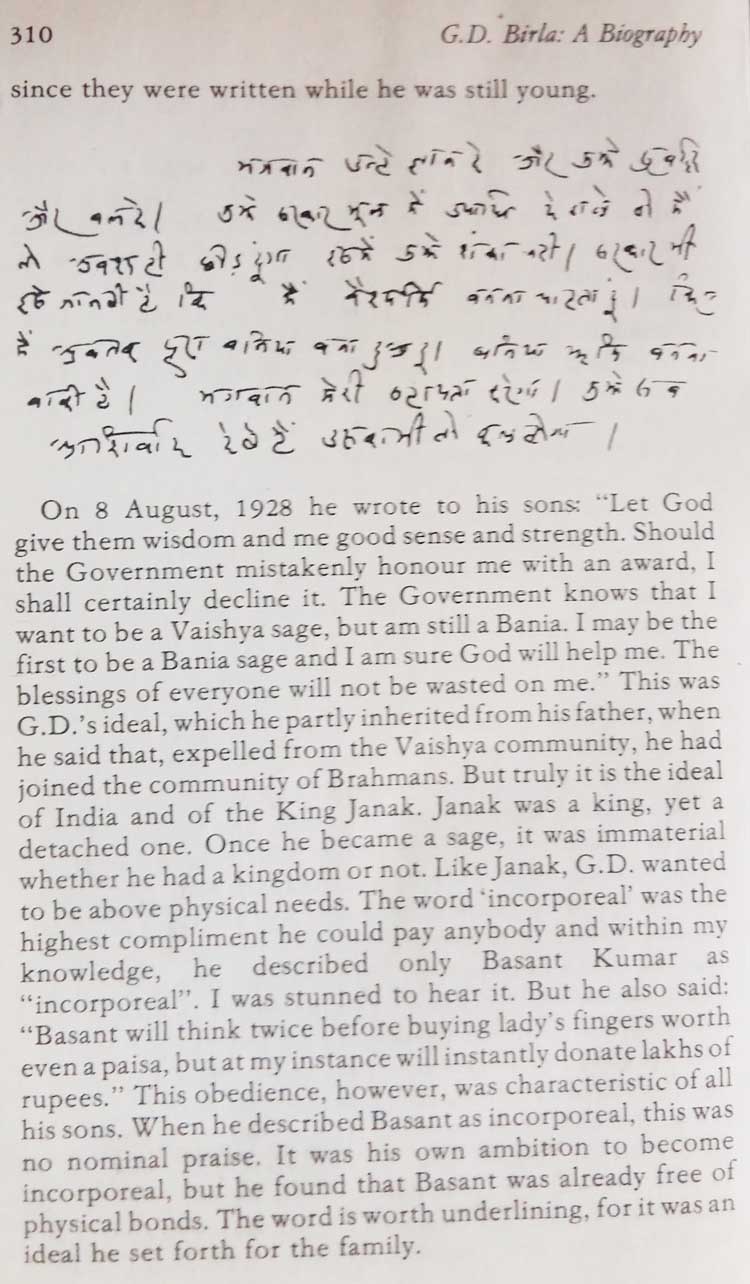 310 G.D. Birla: A Biography
since they were written while he was still young.
भगवान उन्हें ज्ञान दे और मुझे
और बल दे। मुझे सरकार भूल में उपाधि दे डाले तो मैं
तो अवश्य ही छोड़ दूंगा इसमें मुझे शंका नहीं। सरकार भी
मैं वैश्यर्षि बनना चाहता हूं।
मैं अबतक पूरा बनिया बना हुआ हूं। बनिया ऋषि बनना
बाकी है। भगवान मेरी सहायता करेगा। मुझे सब
आशीर्वाद देते हैं
On 8 August, 1928 he wrote to his sons: “Let God
give them wisdom and me good sense and strength. Should
the Government mistakenly honour me with an award, I
shall certainly decline it. The Government knows that I
want to be a Vaishya sage, but am still a Bania. I may be the
first to be a Bania sage and I am sure God will help me. The
blessings of everyone will not be wasted on me.” This was
G.D.’s ideal, which he partly inherited from his father, when
he said that, expelled from the Vaishya community, he had
joined the community of Brahmans. But truly it is the ideal
of India and of the King Janak. Janak was a king, yet a
detached one. Once he became a sage, it was immaterial
whether he had a kingdom or not. Like Janak, G.D. wanted
to be above physical needs. The word ‘incorporeal’ was the
highest compliment he could pay anybody and within my
knowledge, he described only Basant Kumar as
“incorporeal”. I was stunned to hear it. But he also said:
“Basant will think twice before buying lady’s fingers worth
even a paisa, but at my instance will instantly donate lakhs of
rupees.” This obedience, however, was characteristic of all
his sons. When he described Basant as incorporeal, this was
no nominal praise. It was his own ambition to become
incorporeal, but he found that Basant was already free of
physical bonds. The word is worth underlining, for it was an
ideal he set forth for the family.